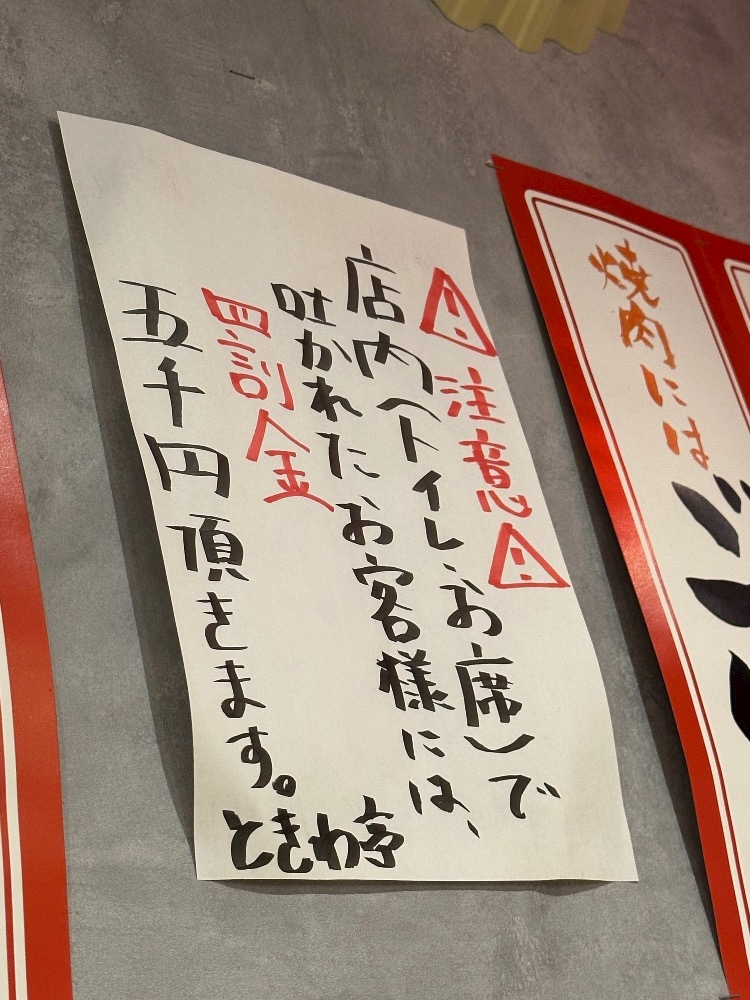 ⚠注意⚠
店内(トイレ・お席)で
吐かれた、お客様には、
罰金
五千円頂きます。
ときわ亭
焼肉には